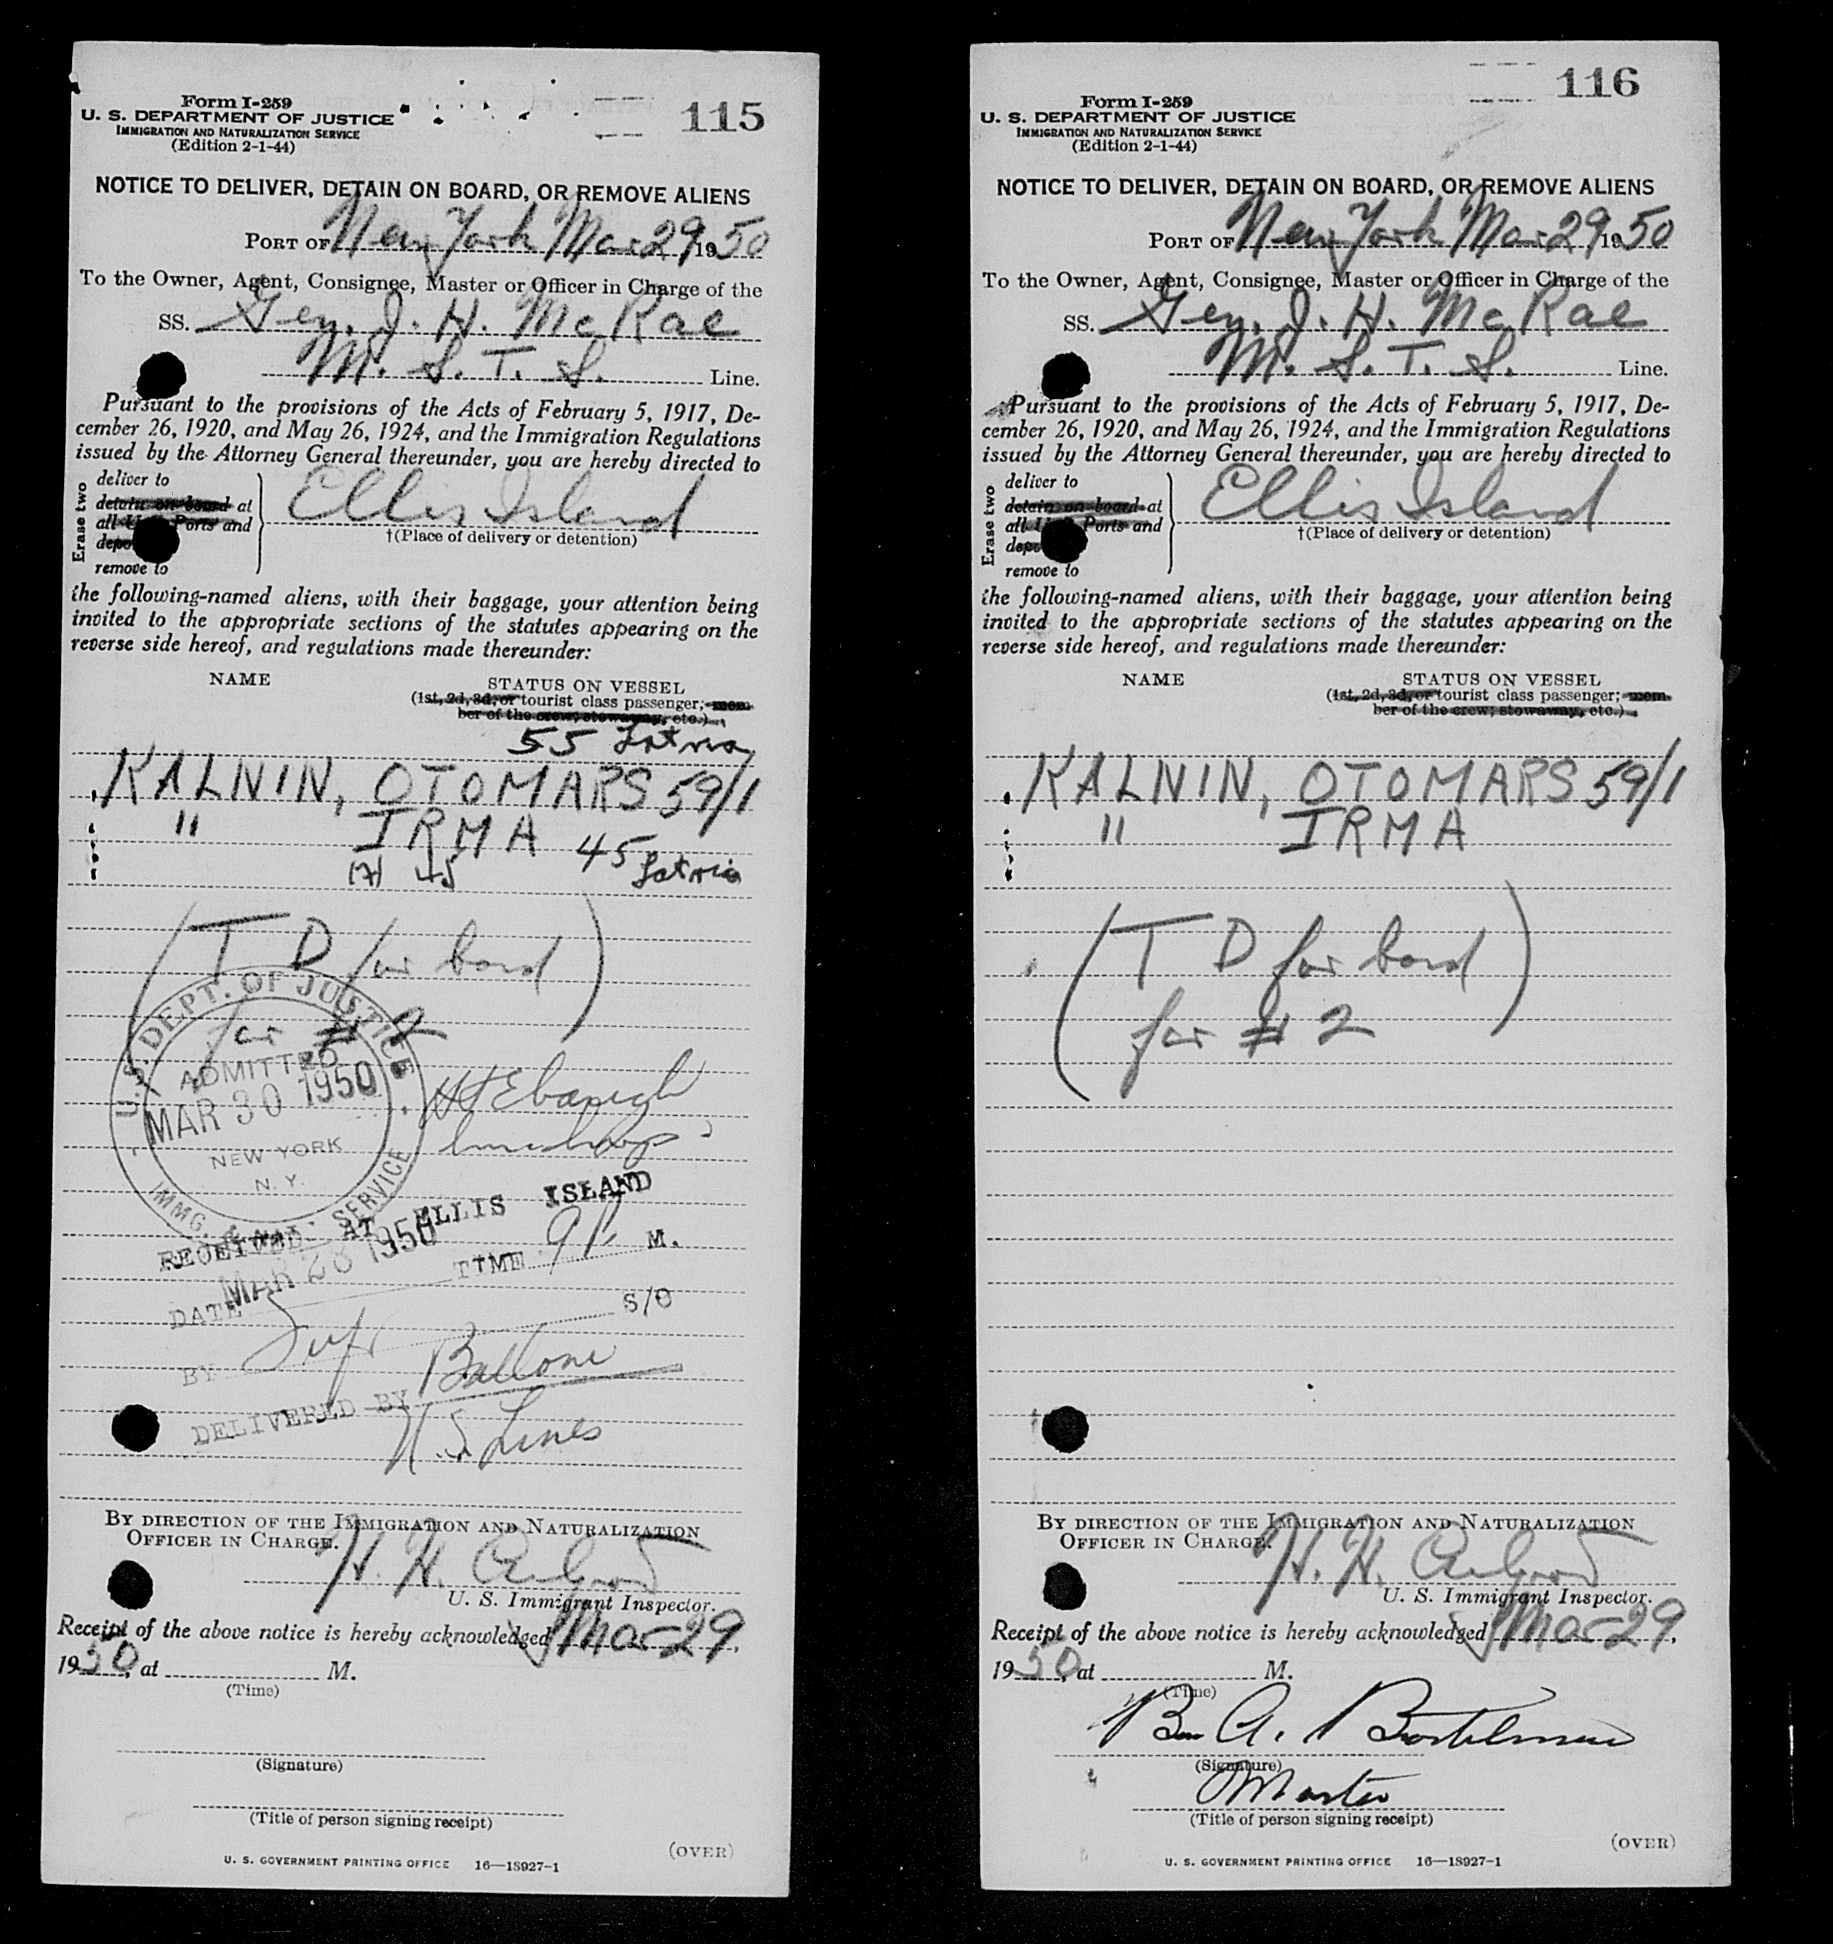 115
Form I-259
U. S. DEPARTMENT OF JUSTICE
IMMIGRATION AND NATURALIZATION SERVICE
(Edition 2-1-44)
NOTICE TO DELIVER, DETAIN ON BOARD, OR REMOVE ALIENS
PORT OF New York Mar 29, 1950
To the Owner, Agent, Consignee, Master or Officer in Charge of the
SS. Gen. J. H. McRae
M. S. T. S. Line.
Pursuant to the provisions of the Acts of February 5, 1917, De-
cember 26, 1920, and May 26, 1924, and the Immigration Regulations
issued by the Attorney General thereunder, you are hereby directed to
Erase two
deliver to
detain on board at
all U. S. Ports and
remove to
Ellis Island
†(Place of delivery or detention)
the following-named aliens, with their baggage, your attention being
invited to the appropriate sections of the statutes appearing on the
reverse side hereof, and regulations made thereunder:
NAME STATUS ON VESSEL
(1st, 2d, 3d, or tourist class passenger; mem-
ber of the crew; stowaway, etc.)
55 Latvia
KALNIN, OTOMARS 59/1
" IRMA 45 Latvia
(7) 45
(T D for bond)
for # 2
U.S. DEPT. OF JUSTICE
ADMITTED
MAR 30 1950
NEW YORK
N. Y.
IMMG. & NAT. SERVICE
RECEIVED AT ELLIS ISLAND
DATE MAR 28 1950 TIME 9 P. M.
BY S/O
DELIVERED BY
U.S. Lines
BY DIRECTION OF THE IMMIGRATION AND NATURALIZATION
OFFICER IN CHARGE.
H. H.
U. S. Immigrant Inspector.
Receipt of the above notice is hereby acknowledged Mar 29,
1950, at M.
(Time)
(Signature)
(Title of person signing receipt)
(OVER)
U. S. GOVERNMENT PRINTING OFFICE 16—18927-1
116
Form I-259
U. S. DEPARTMENT OF JUSTICE
IMMIGRATION AND NATURALIZATION SERVICE
(Edition 2-1-44)
NOTICE TO DELIVER, DETAIN ON BOARD, OR REMOVE ALIENS
PORT OF New York Mar 29, 1950
To the Owner, Agent, Consignee, Master or Officer in Charge of the
SS. Gen. J. H. McRae
M. S. T. S. Line.
Pursuant to the provisions of the Acts of February 5, 1917, De-
cember 26, 1920, and May 26, 1924, and the Immigration Regulations
issued by the Attorney General thereunder, you are hereby directed to
Erase two
deliver to
detain on board at
all U. S. Ports and
remove to
Ellis Island
†(Place of delivery or detention)
the following-named aliens, with their baggage, your attention being
invited to the appropriate sections of the statutes appearing on the
reverse side hereof, and regulations made thereunder:
NAME STATUS ON VESSEL
(1st, 2d, 3d, or tourist class passenger; mem-
ber of the crew; stowaway, etc.)
KALNIN, OTOMARS 59/1
" IRMA
(T D for bond)
for # 2
BY DIRECTION OF THE IMMIGRATION AND NATURALIZATION
OFFICER IN CHARGE.
H. H.
U. S. Immigrant Inspector.
Receipt of the above notice is hereby acknowledged Mar 29,
1950, at M.
(Time)
(Signature)
Master
(Title of person signing receipt)
(OVER)
U. S. GOVERNMENT PRINTING OFFICE 16—18927-1